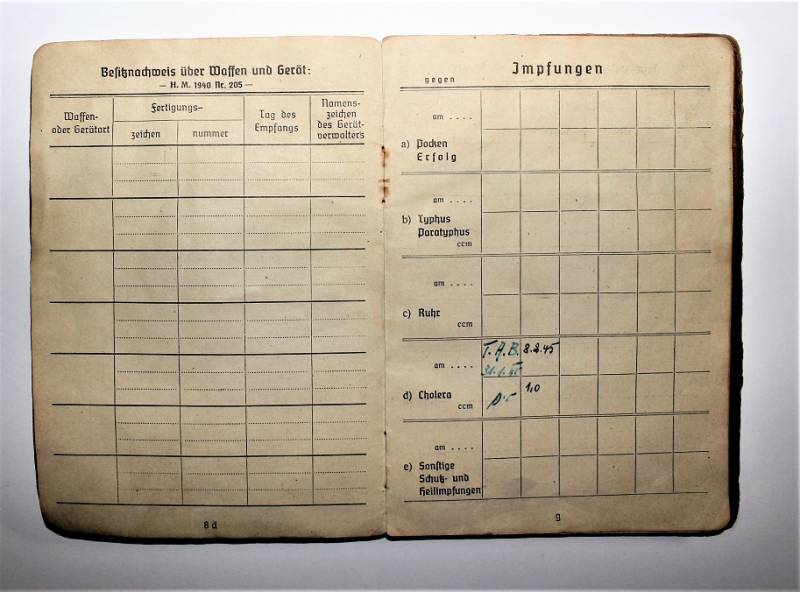 Besitznachweis über Waffen und Gerät:
— H. M. 1940 Nr. 205 —
Waffen- oder Gerätart
Fertigungs-
zeichen
nummer
Tag des Empfangs
Namens- zeichen des Gerät- verwalters
8 d
Impfungen
gegen
am . . . .
a) Pocken
Erfolg
am . . . .
b) Typhus
Paratyphus
ccm
am . . . .
c) Ruhr
ccm
T. A. B. 8.2.45
am . . . .
31.1.45
d) Cholera
ccm
1,0
am . . . .
e) Sonstige
Schutz- und
Heilimpfungen
9